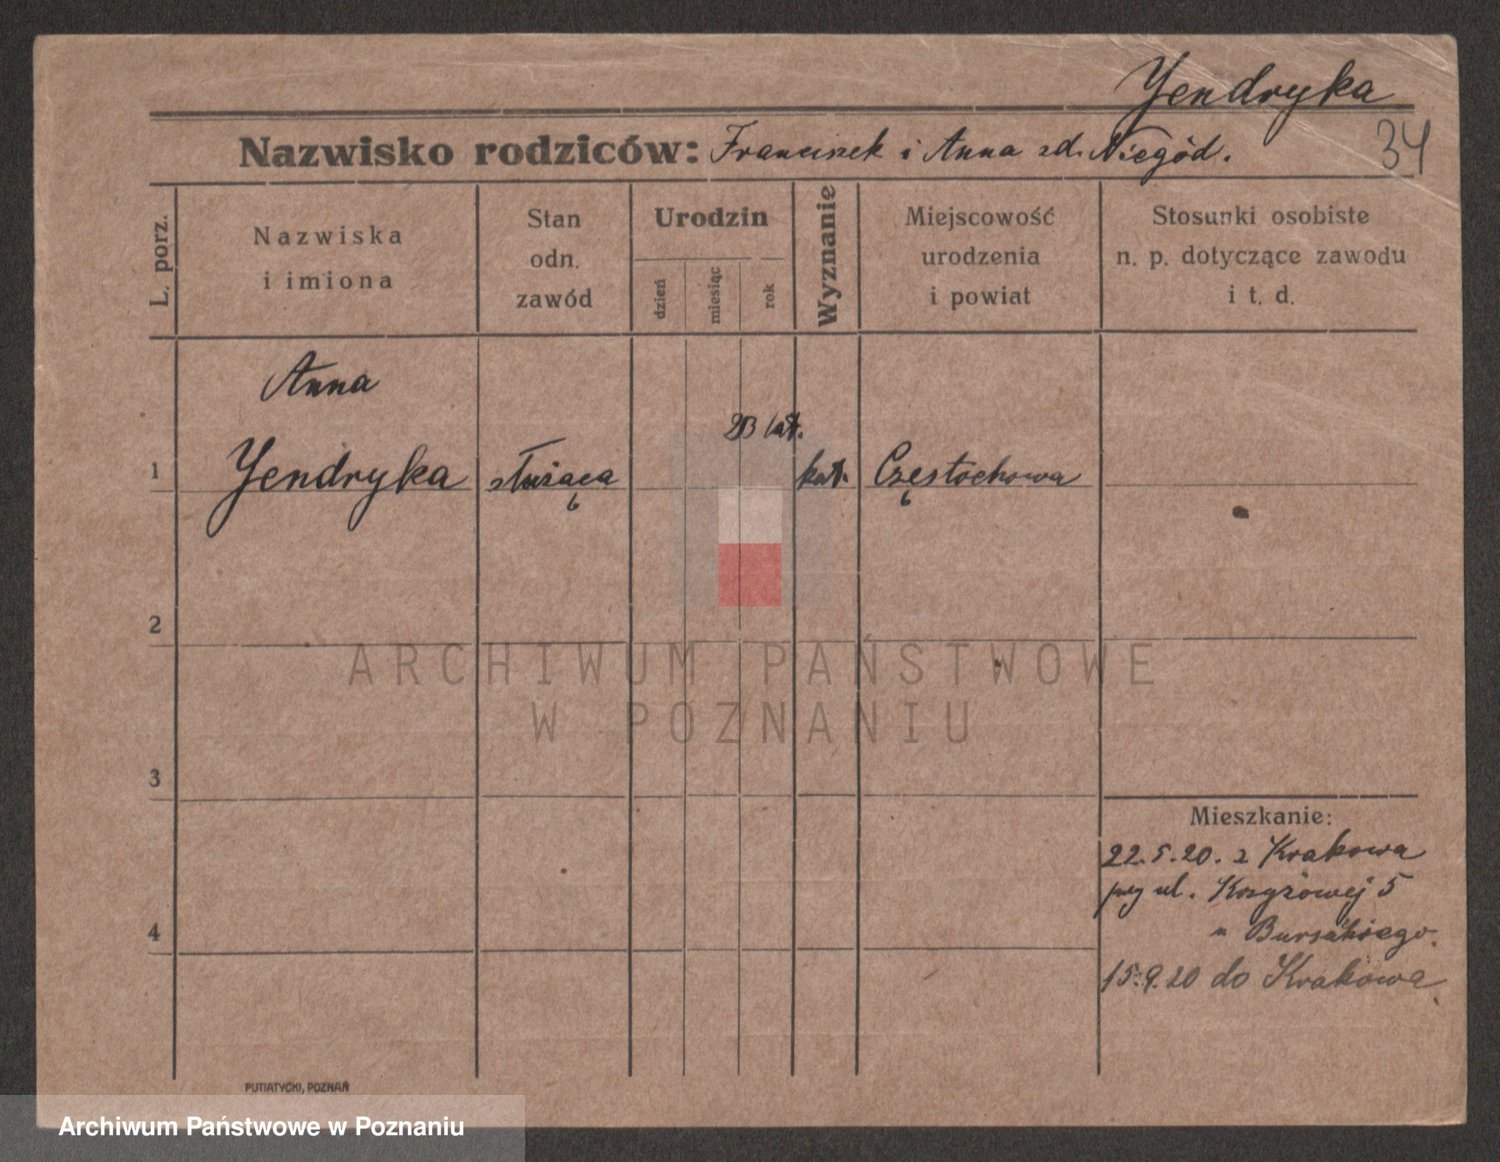 Yendryka
34
Nazwisko rodziców: Franciszek i Anna zd. Niegód.
L. porz.
Nazwiska
i imiona
Stan
odn.
zawód
Urodzin
dzień
miesiąc
rok
Wyznanie
Miejscowość
urodzenia
i powiat
Stosunki osobiste
n. p. dotyczące zawodu
i t. d.
Anna
23 lat.
1 Yendryka służąca kat. Częstochowa
2
ARCHIWUM PAŃSTWOWE
W POZNANIU
3
Mieszkanie:
22.5.20. z Krakowa
przy ul. Krężowej 5
u Bursàkiego.
4
15.9.20 do Krakowa
PUTIATYCKI, POZNAŃ
Archiwum Państwowe w Poznaniu